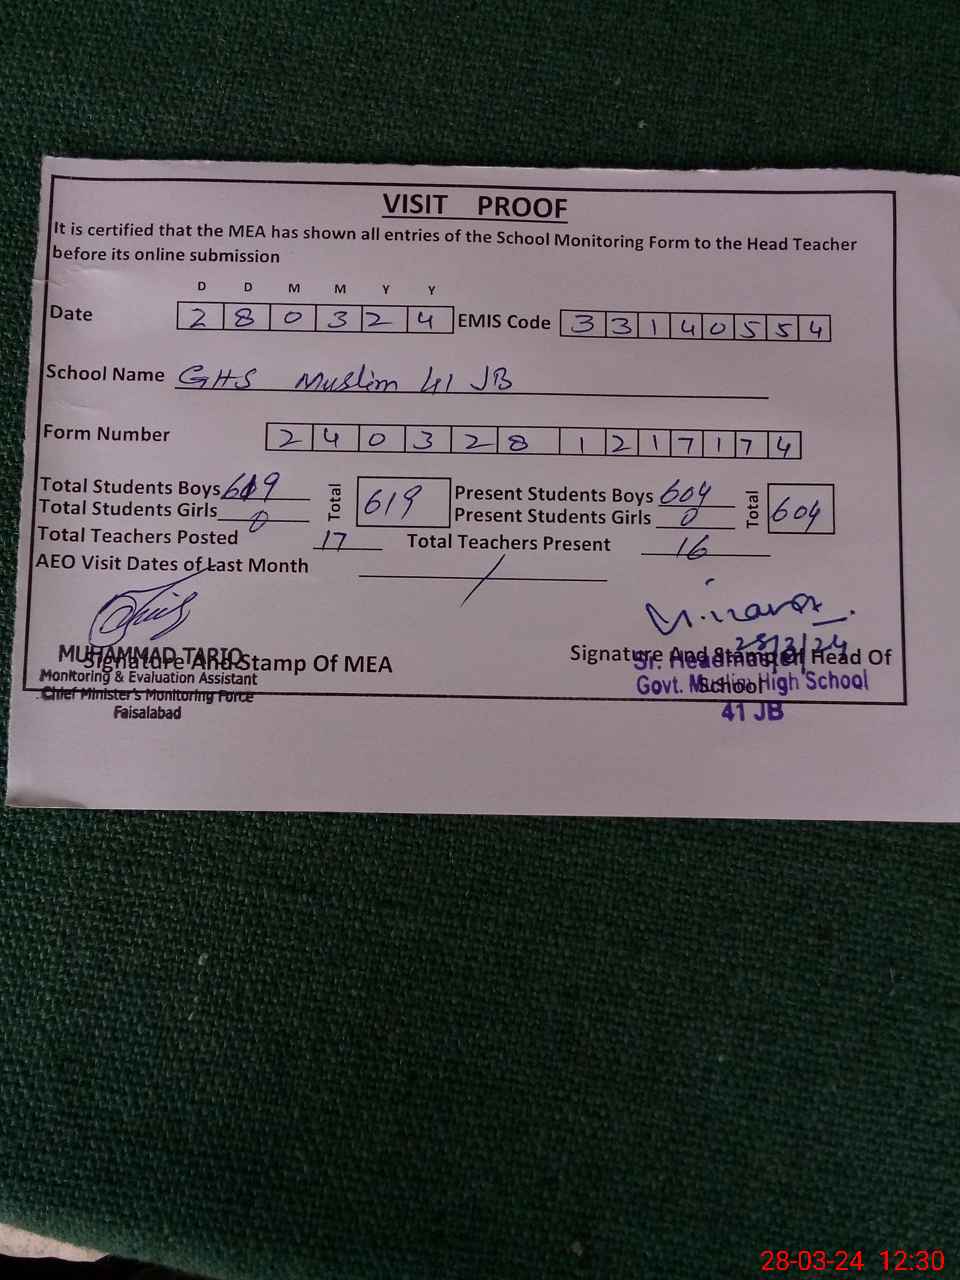 VISIT PROOF
It is certified that the MEA has shown all entries of the School Monitoring Form to the Head Teacher
before its online submission
D D M M Y Y
Date 2 8 0 3 2 4 EMIS Code 3 3 1 4 0 5 5 4
School Name GHS Muslim 41 JB
Form Number 2 4 0 3 2 8 1 2 1 7 1 7 4
Total Students Boys 619 Total 619 Present Students Boys 604 Total 604
Total Students Girls 0 Present Students Girls 0
Total Teachers Posted 17 Total Teachers Present 16
AEO Visit Dates of Last Month /
28/3/24
MUHAMMAD TARIQ
Signature And Stamp Of MEA Signature And Stamp Of Head Of
School
Monitoring & Evaluation Assistant
Chief Minister's Monitoring Force
Faisalabad
Sr. Headmaster
Govt. Muslim High School
41 JB
28-03-24 12:30